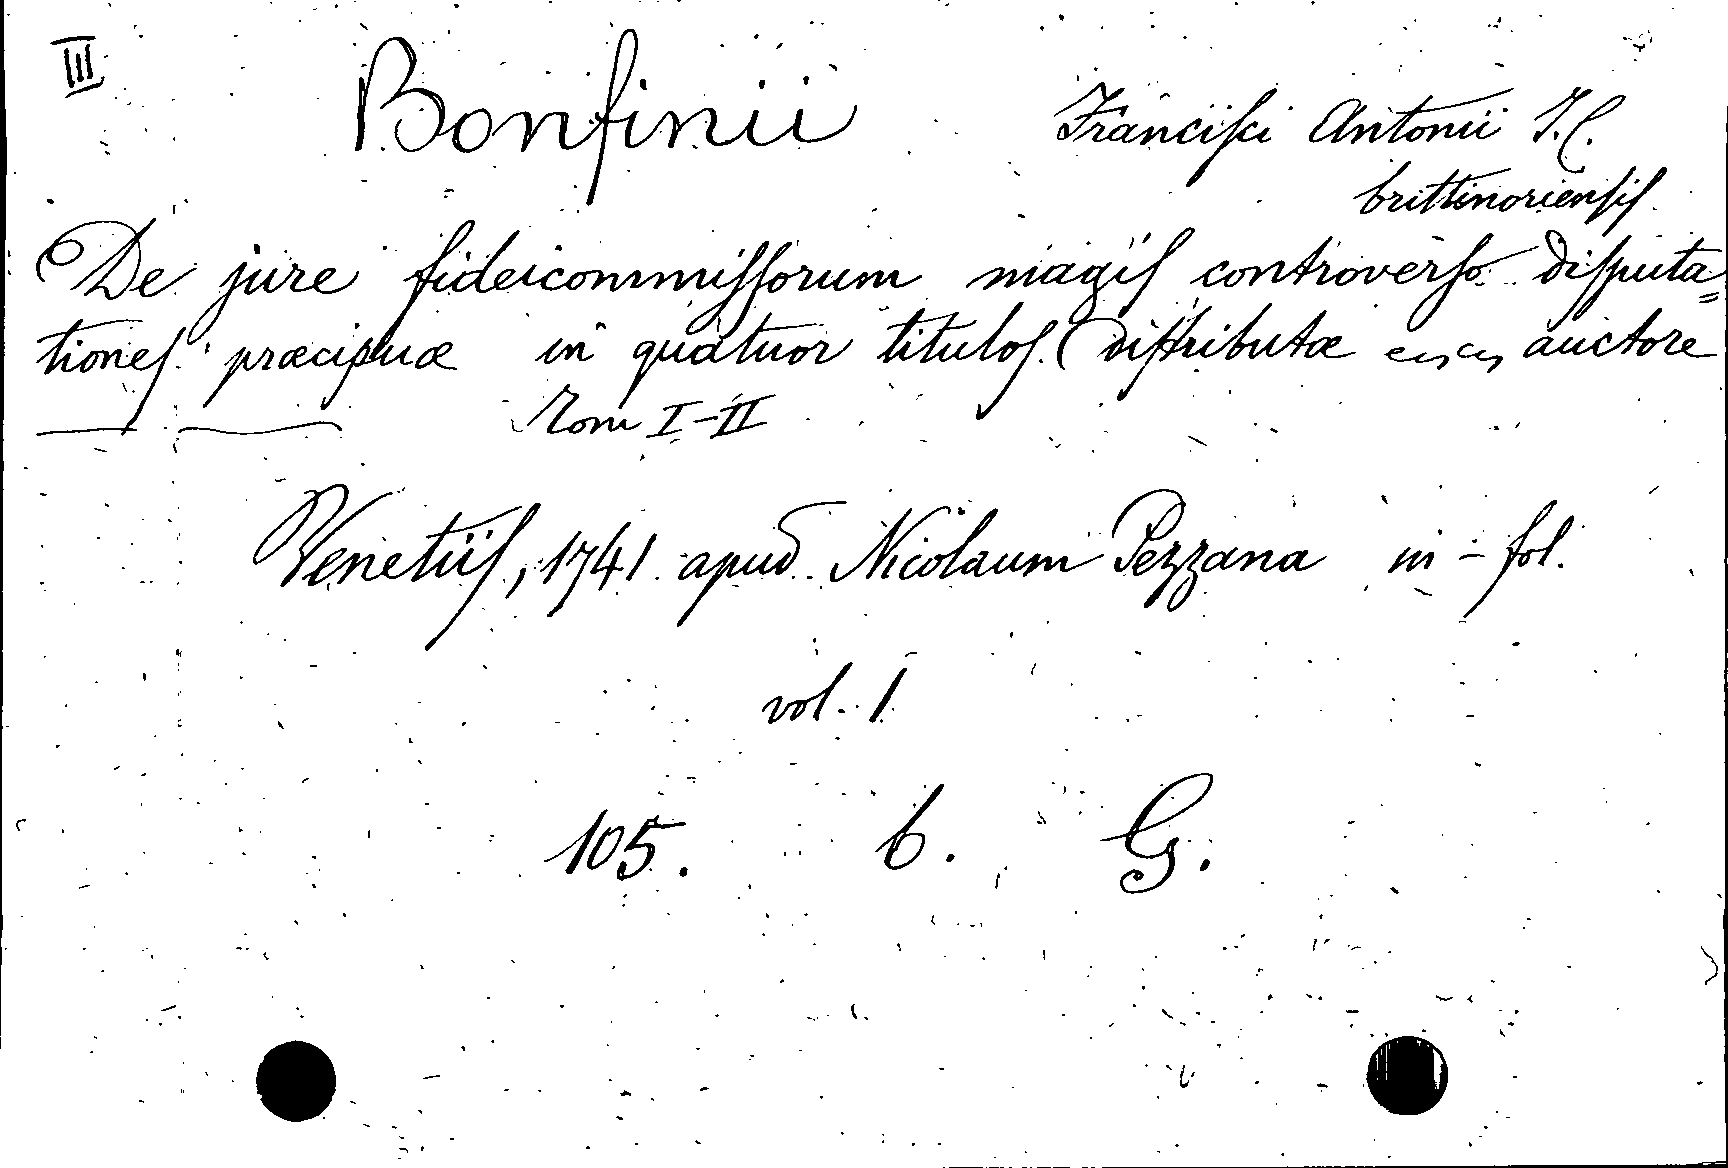 III
Bonfinii Francisci Antonii J. C.
brittinoriensis
De jure fideicommissorum magis controverso disputa=
tiones præcipuæ in quatuor titulos distributæ auctore
Tom I-II
Venetiis, 1741 apud Nicolaum Pezzana in-fol.
vol. 1
105. b. G.